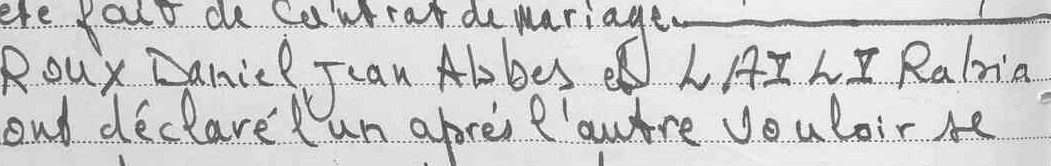 ete fait de Contrat de mariage.
Roux Daniel Jean Abbes et LAILI Rabia
ont déclaré l'un après l'autre vouloir se